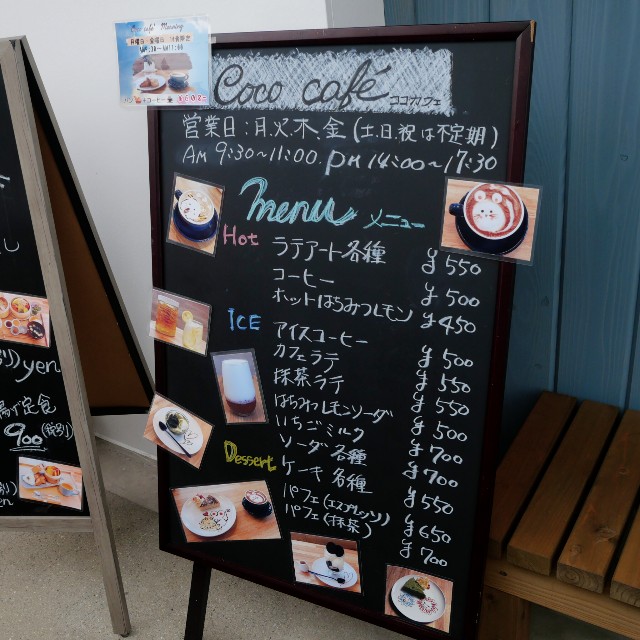 Café Morning
Coco café ココカフェ
営業日:月火木金(土日祝は不定期)
AM 9:30~11:00 PM 14:00~17:30
menu メニュー
Hot
ラテアート各種 ¥550
コーヒー ¥500
ホットはちみつレモン ¥450
ICE
アイスコーヒー ¥500
カフェラテ ¥550
抹茶ラテ ¥550
はちみつレモンソーダ ¥500
いちごミルク ¥700
ソーダ各種 ¥700
Dessert
ケーキ各種 ¥550
パフェ(エスプレッソ) ¥650
パフェ(抹茶) ¥700
yen
定食
900(税別)